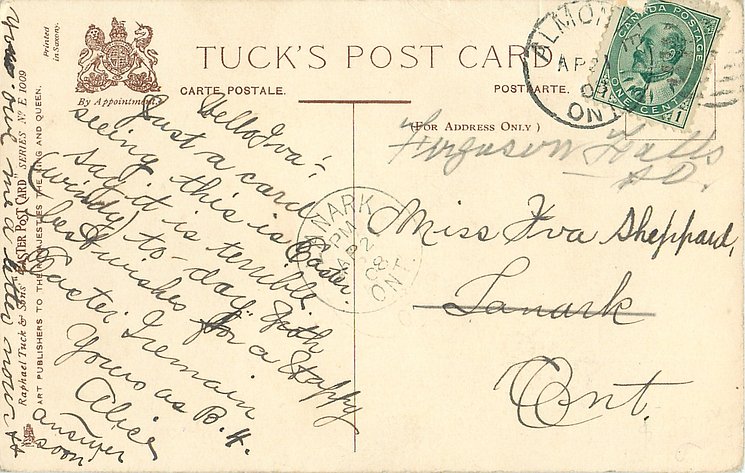 TUCK'S POST CARD
CARTE POSTALE.
POSTKARTE.
(For Address Only)
By Appointment.
Printed in Saxony.
Raphael Tuck & Sons' "EASTER POST CARD" SERIES No E 1009
ART PUBLISHERS TO THEIR MAJESTIES THE KING AND QUEEN.
CANADA POSTAGE
ONE CENT
1
ALMON
AP 2
08
ONT
LANARK
PM
AP 2
08
ONT.
Hello Iva:-
Just a card
seeing this is Easter.
Say it is terrible
(windy) to-day. With
best wishes for a Happy
Easter I remain
Yours as B. 4.
Alice
answer
soon
me a letter now
Ferguson Falls
Miss Iva Sheppard,
Lanark
Ont.